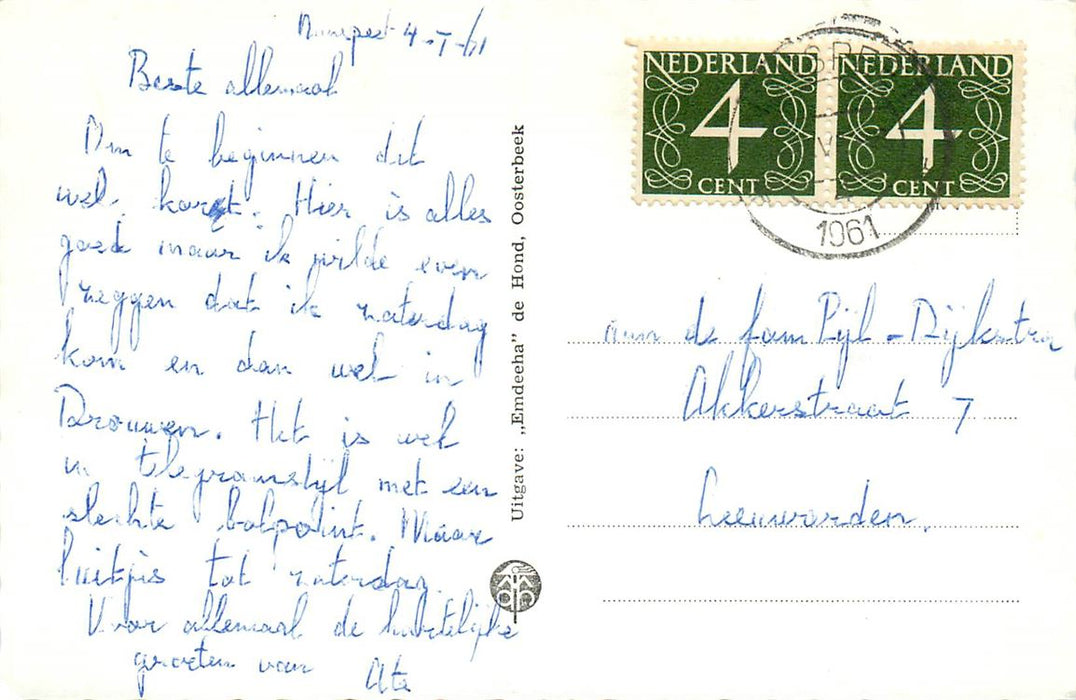 Nunspeet 4-I-61
Beste allemaal
Om te beginnen dit
wel kort. Hier is alles
goed maar ik wilde even
zeggen dat ik zaterdag
kom en dan wel in
Drouwen. Het is wel
in telegramstijl met een
slechte balpoint. Maar
luitjes tot zaterdag.
Voor allemaal de hartelijke
groeten van Ate
Uitgave: „Emdeeha” de Hond, Oosterbeek
NEDERLAND
4
CENT
NEDERLAND
4
CENT
1961
aan de fam Pijl-Dijkstra
Akkerstraat 7
Leeuwarden.